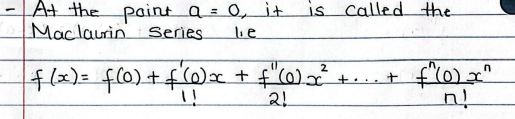 - At the point a = 0, it is called the
Maclaurin Series i.e
f(x) = f(0) + f'(0)x/1! + f''(0)x²/2! + ... + fⁿ(0)xⁿ/n!